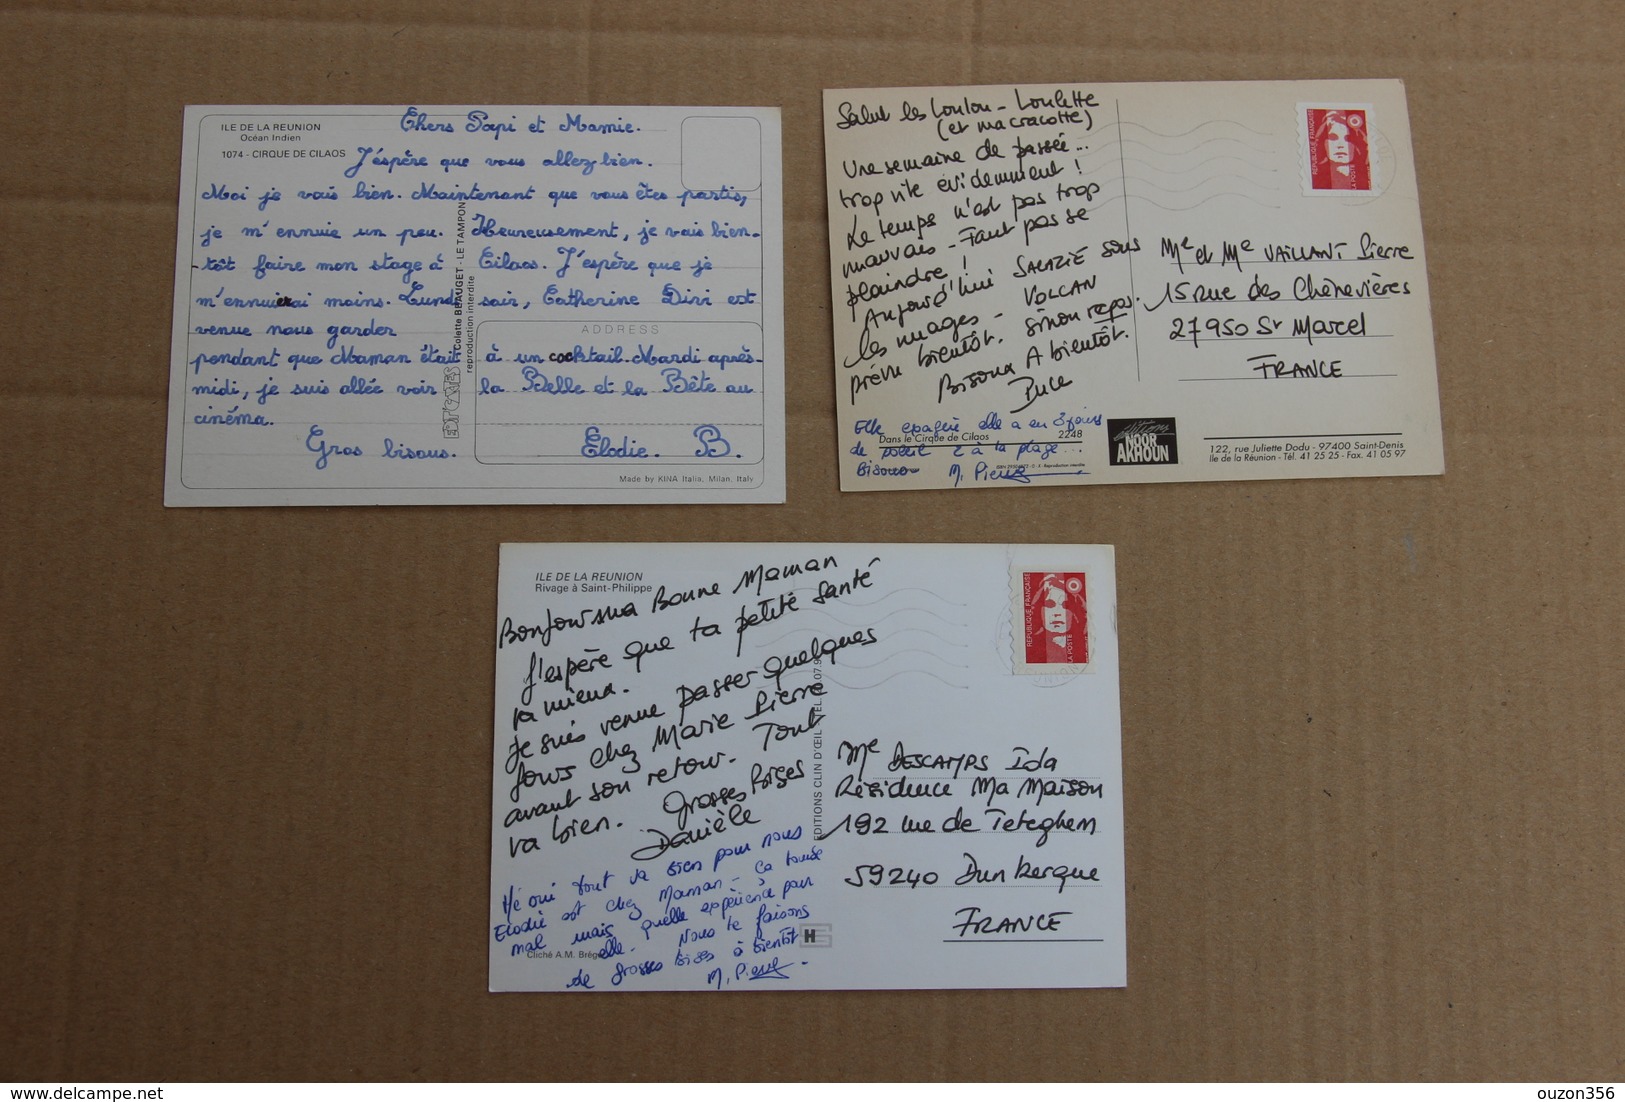 ILE DE LA REUNION
Océan Indien
1074 - CIRQUE DE CILAOS
Chers Papi et Mamie.
J'espère que vous allez bien.
Moi je vais bien. Maintenant que vous êtes partis,
je m'ennuie un peu. Heureusement, je vais bien-
tôt faire mon stage à Cilaos. J'espère que je
m'ennuierai moins. Lundi soir, Catherine Divi est
venue nous garder
pendant que Maman était à un cocktail. Mardi après-
midi, je suis allée voir la Belle et la Bête au
cinéma.
Gros bisous. Elodie. B.
ADDRESS
Colette BEAUGET - LE TAMPON
reproduction interdite
EDIT'CARTES
Made by KINA Italia, Milan, Italy
Salut les Loulou - Loulette
(et macracotte)
Une semaine de passée...
trop vite évidemment !
Le temps n'est pas trop
mauvais - Faut pas se
plaindre !
Aujourd'hui SALAZIE sous
les nuages - VOLCAN
prévu bientôt. Sinon repos.
Bisoux A bientôt.
Elle epagne elle a eu 3 jours
de soleil 2 à la plage...
bisous M. Pierre
Dans le Cirque de Cilaos 2248
Editions
NOOR
AKHOUN
REPUBLIQUE FRANÇAISE
LA POSTE
Me et Me VAILLANT Pierre
15 rue des Chènevières
27950 St Marcel
FRANCE
122, rue Juliette Dodu - 97400 Saint-Denis
Ile de la Réunion - Tél. 41 25 25 - Fax. 41 05 97
ILE DE LA REUNION
Rivage à Saint-Philippe
Bonjour ma Bonne Maman
J'espère que ta petite santé
va mieux.
Je suis venue passer quelques
jours chez Marie Pierre
avant son retour. Tout
va bien. Grosses bises
Danièle
Hé oui tout va bien pour nous
Elodie est chez Maman - ça tousse
mal mais quelle expérience pour
elle. Nous te faisons
de grosses bises à bientôt
M. Pierre
Cliché A.M. Brég
EDITIONS CLIN D'ŒIL
REPUBLIQUE FRANÇAISE
LA POSTE
Me DESCAMPS Ida
Résidence Ma Maison
192 rue de Teteghem
59240 Dunkerque
FRANCE
delcampe.net
ouzon356